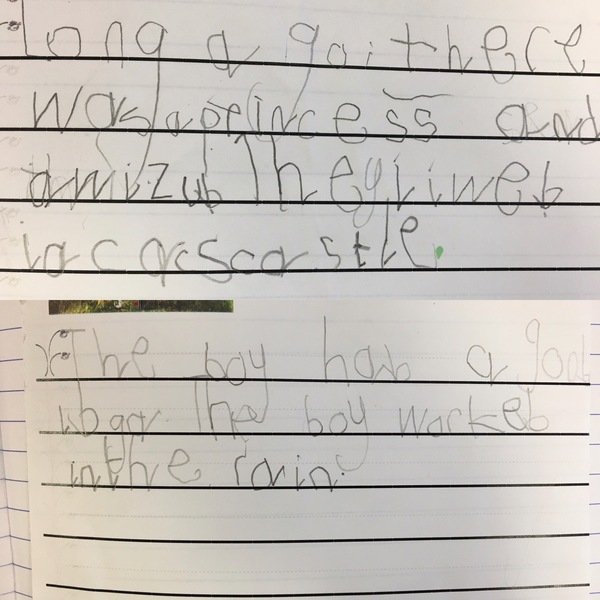 long a go; there
was a princess and
a wizub They liweb
in a castle.
The boy hab a goot
The boy worket
in the rain.